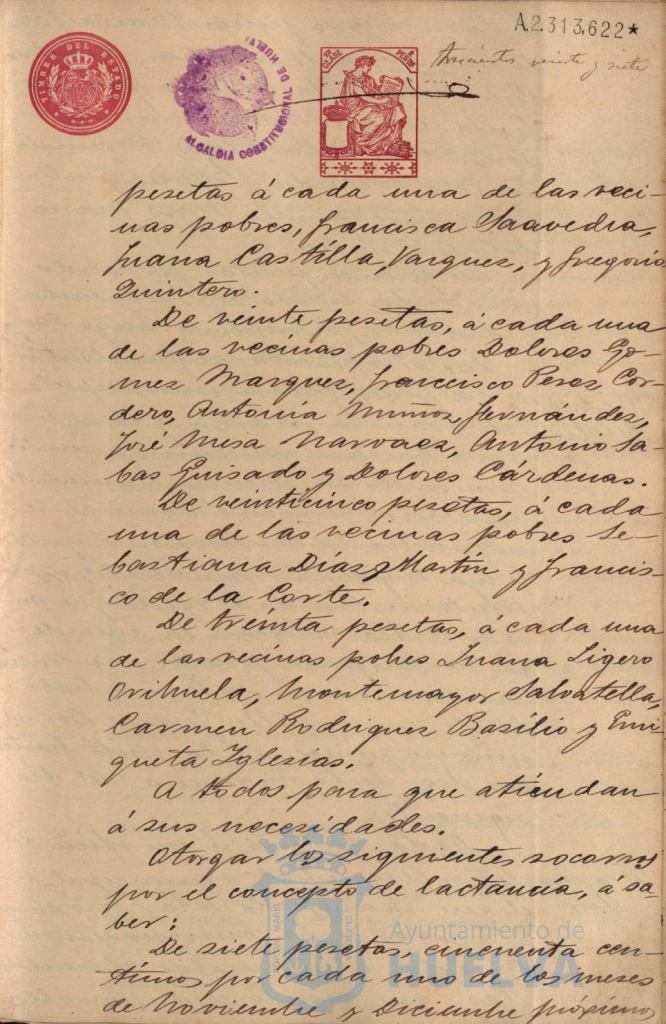 A.2.313.622*
TIMBRE DEL ESTADO
ALCALDIA CONSTITUCIONAL DE HUELVA
CLASE
PESETA
veinte y siete
pesetas á cada una de las veci-
nas pobres, Francisca Saavedra,
Juana Castilla, Vazquez, y Gregoria
Quintero.
De veinte pesetas, á cada una
de las vecinas pobres Dolores Go-
mez Marquez, Francisco Perez Cor-
dero, Antonia Muñoz, Hernández,
José Mesa Narvaez, Antonio Sa-
bas Guisado y Dolores Cárdenas.
De veinticinco pesetas, á cada
una de las vecinas pobres Se-
bastiana Díaz, Martín y Francis-
co de la Corte.
De treinta pesetas, á cada una
de las vecinas pobres Juana Ligero
Orihuela, Montemayor Salvatella,
Carmen Rodriguez Basilio y Enri-
queta Iglesias.
A todos para que atiendan
á sus necesidades.
Otorgar los siguientes socorros
por el concepto de lactancia, á sa-
ber:
De siete pesetas, cincuenta cen-
timos por cada uno de los meses
de Noviembre y Diciembre próximos
Ayuntamiento de
HUELVA